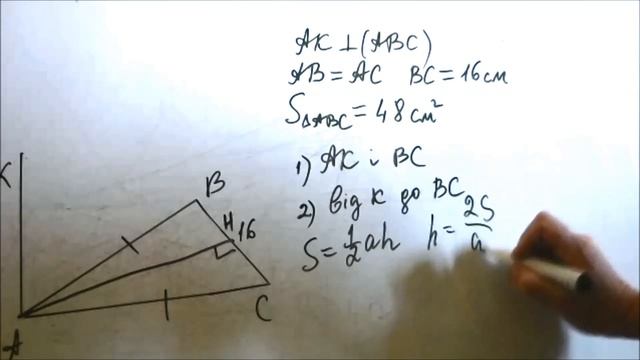 AK ⊥ (ABC)
AB = AC BC = 16 см
S△ABC = 48 см²
1) AK i BC
2) від K до BC
S = 1/2 ah h = 2S/a
K
B
H
16
C
A